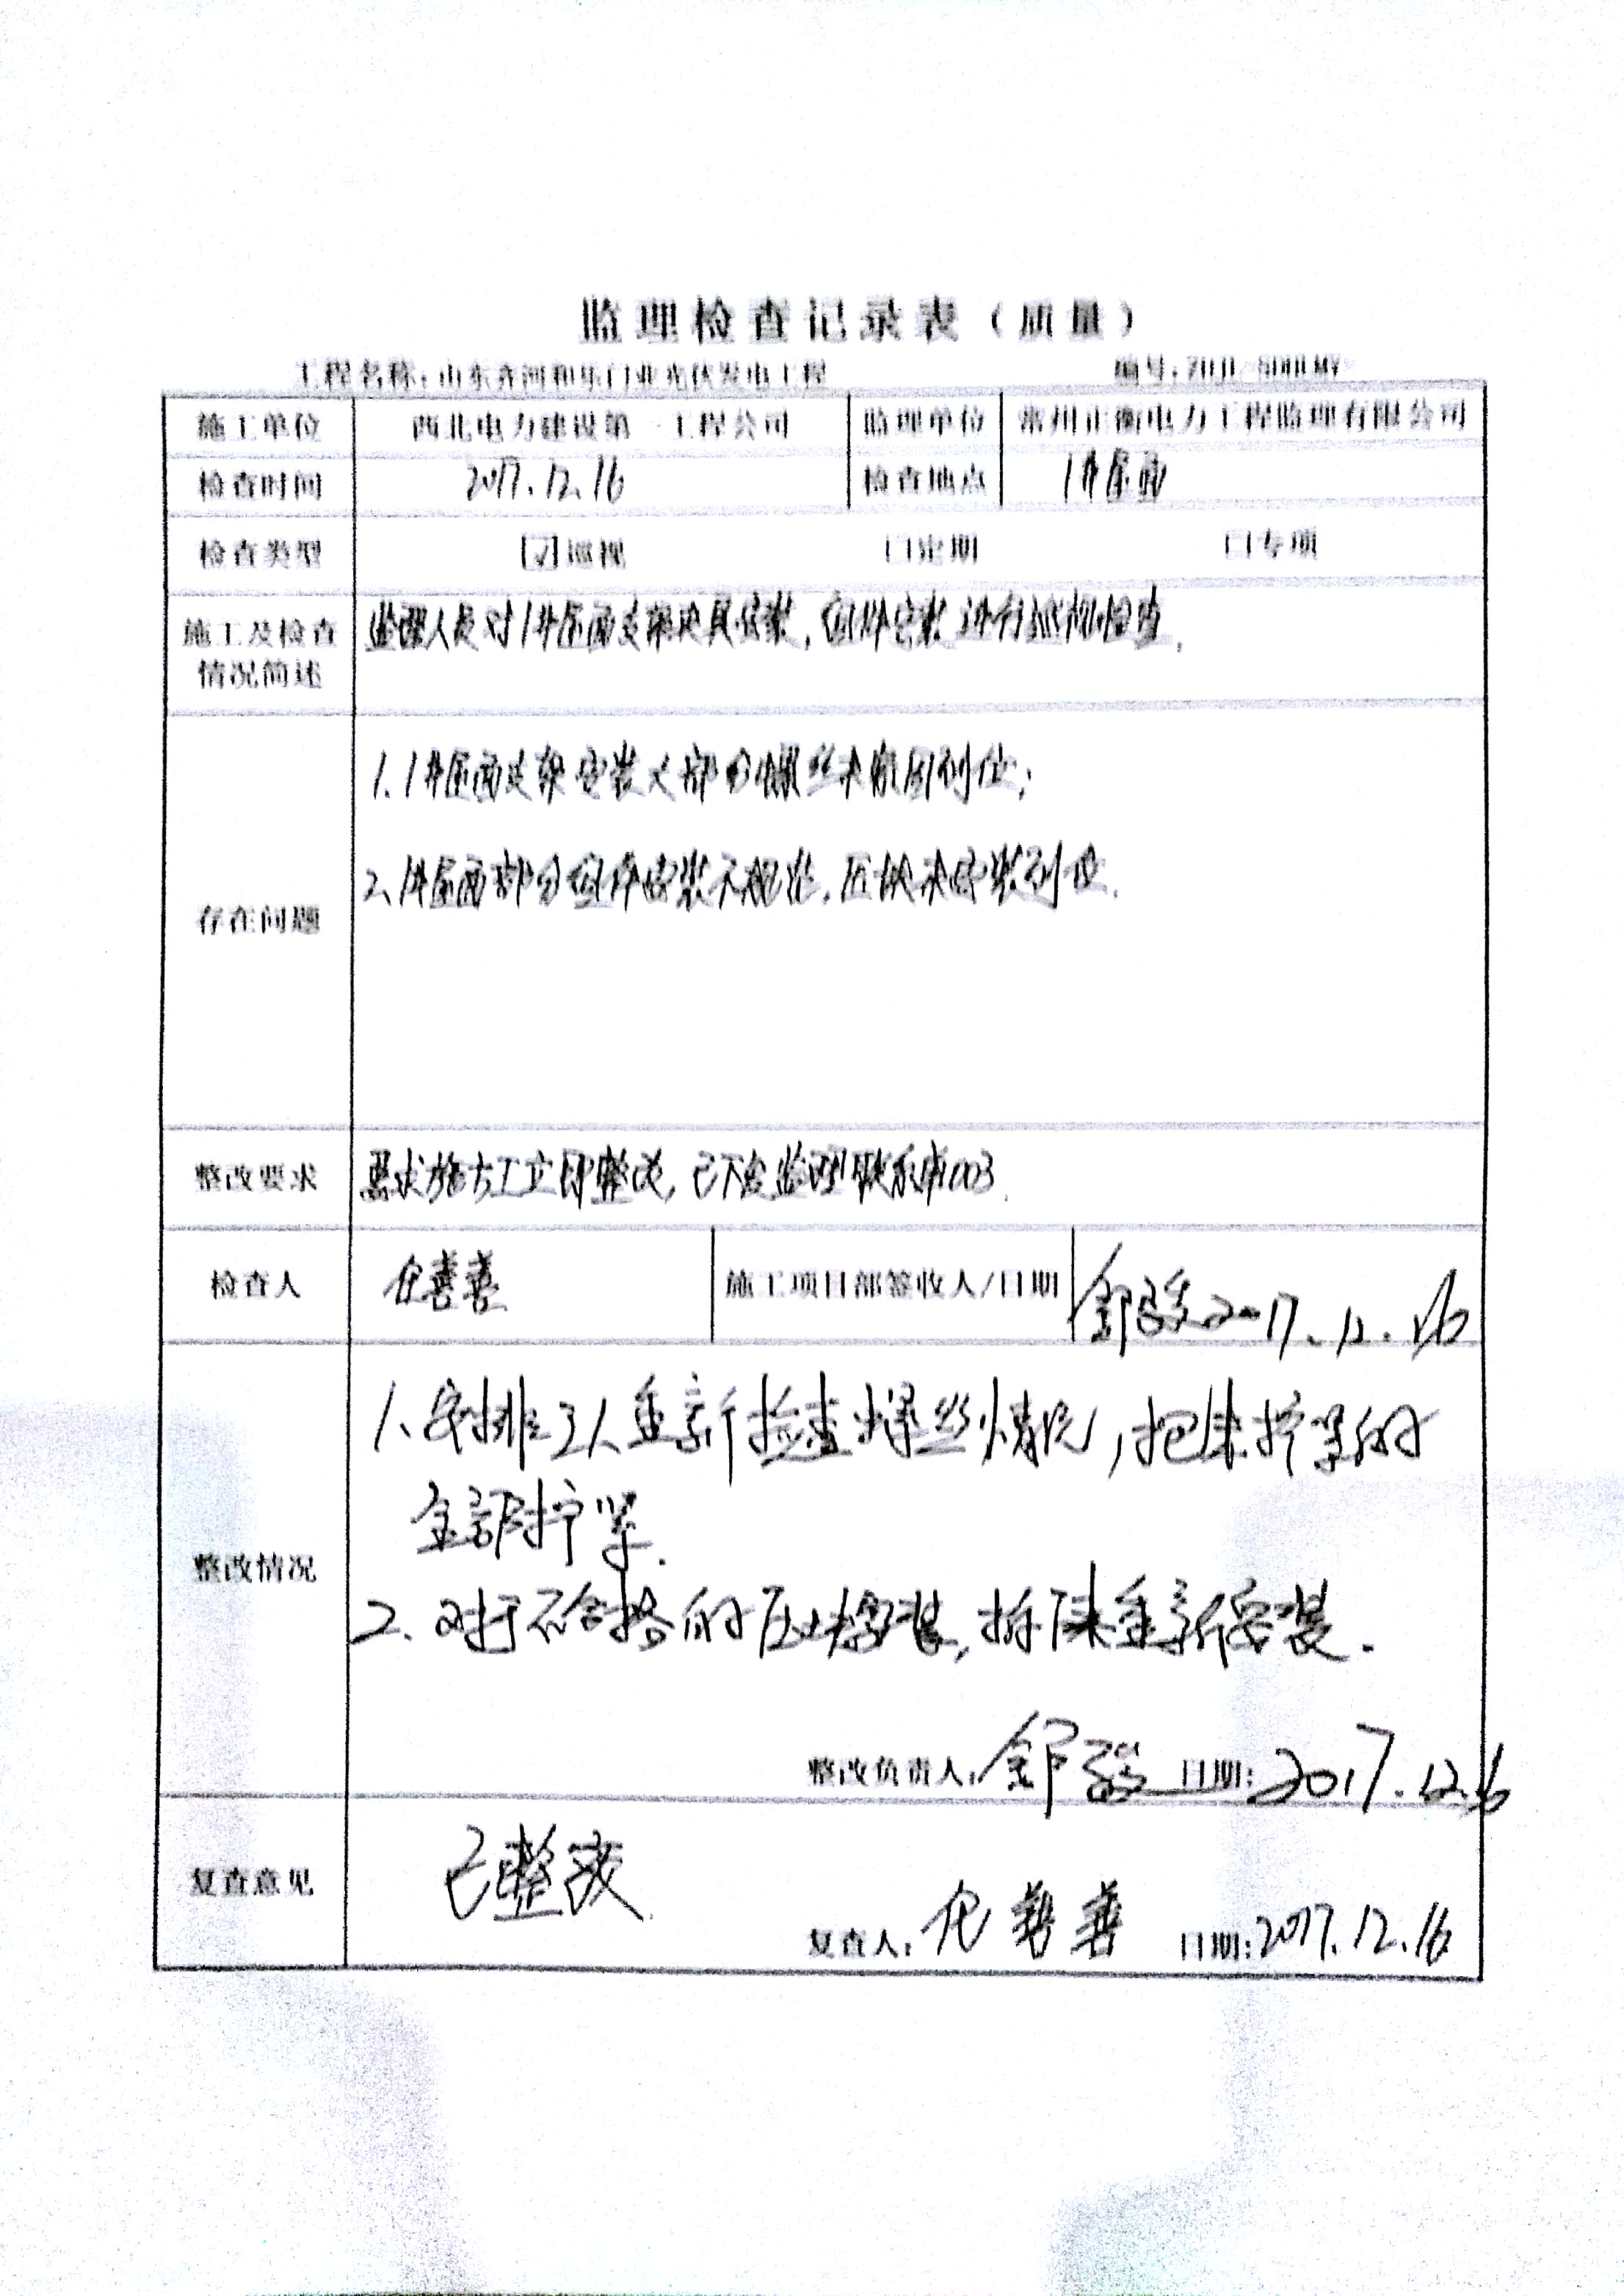 监理检查记录表（质量）
工程名称：山东齐河和乐门业光伏发电工程
编号：
施工单位 西北电力建设第一工程公司 监理单位 常州正衡电力工程监理有限公司
检查时间 2017.12.16 检查地点 1#屋面
检查类型 ☑巡视 □定期 □专项
施工及检查
情况简述
监理人员对1#屋面支架安装，组件安装进行巡视检查。
存在问题
1.1#屋面支架安装大部分螺丝未紧固到位；
2.1#屋面部分组件安装不规范，压块未安装到位。
整改要求 要求施工方立即整改，已下发监理联系单003
检查人 善善 施工项目部签收人/日期 舒强 2017.12.16
整改情况
1、安排工人重新检查螺丝情况，把未拧紧的
全部拧紧.
2.对于不合格的压块安装，拆除重新安装.
整改负责人：舒强 日期：2017.12.16
复查意见
已整改
复查人：善善 日期：2017.12.16